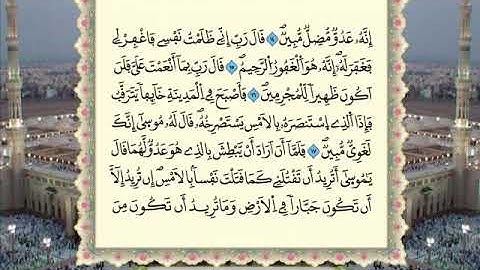 إِنَّهُۥ عَدُوٌّ مُّضِلٌّ مُّبِينٌ ١٤ قَالَ رَبِّ إِنِّے ظَلَمْتُ نَفْسِے فَاغْفِرْ لِے
فَغَفَرَ لَهُۥٓ إِنَّهُۥ هُوَ اَ۬لْغَفُورُ اُ۬لرَّحِيمُ ١٥ قَالَ رَبِّ بِمَآ أَنْعَمْتَ عَلَيَّ فَلَنَ
اَكُونَ ظَهِيراً لِّلْمُجْرِمِينَ ١٦ فَأَصْبَحَ فِے اِ۬لْمَدِينَةِ خَآئِفاً يَتَرَقَّبُ
فَإِذَا اَ۬لذِے اِ۪سْتَنصَرَهُۥ بِالَامْسِ يَسْتَصْرِخُهُۥ قَالَ لَهُۥ مُوسَىٰٓ إِنَّكَ
لَغَوِيٌّ مُّبِينٌ ١٧ فَلَمَّآ أَنَ اَرَادَ أَنْ يَّبْطِشَ بِالذِے هُوَ عَدُوٌّ لَّهُمَا قَالَ
يَٰمُوسَىٰٓ أَتُرِيدُ أَن تَقْتُلَنِے كَمَا قَتَلْتَ نَفْساَۢ بِالَامْسِ إِن تُرِيدُ إِلَّآ
أَن تَكُونَ جَبَّاراً فِے اِ۬لَارْضِ وَمَا تُرِيدُ أَن تَكُونَ مِنَ